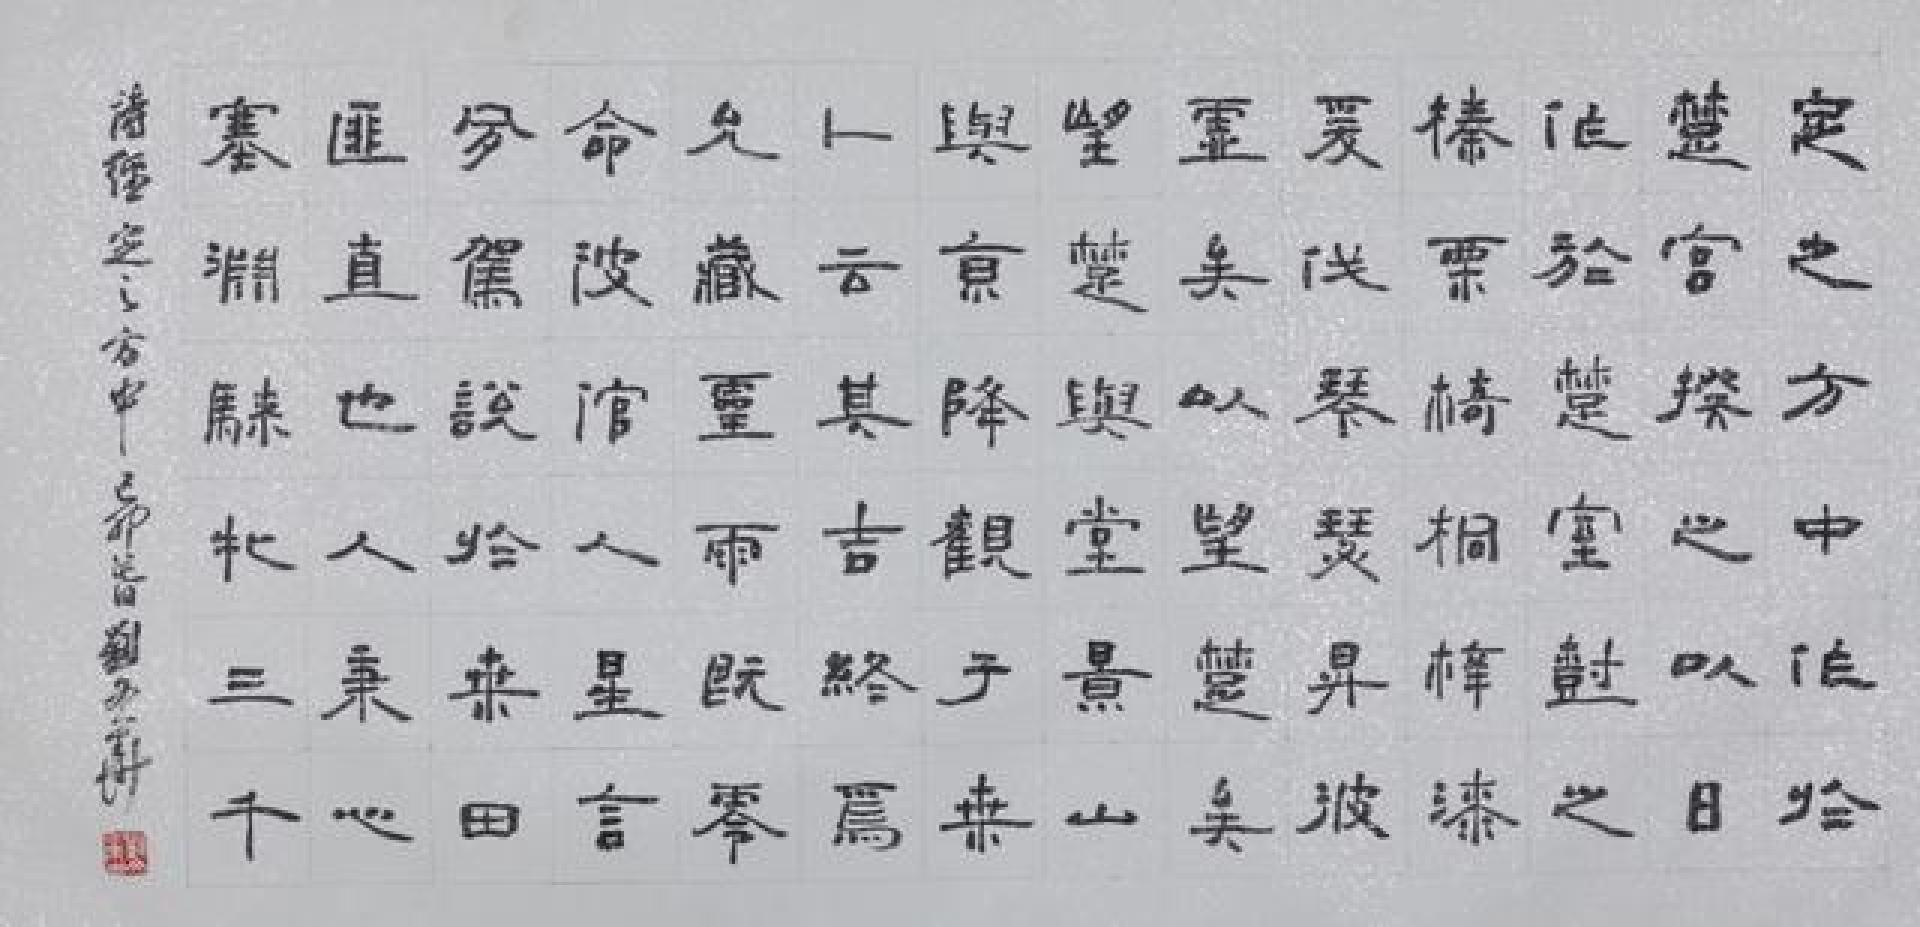 定之方中作於
楚宮揆之以日
作於楚室樹之
榛栗椅桐梓漆
爰伐琴瑟昇彼
虛矣以望楚矣
望楚與堂景山
與京降觀于桑
卜云其吉終焉
允藏靈雨既零
命彼倌人星言
夙駕說於桑田
匪直也人秉心
塞淵騋牝三千
詩經定之方中 己卯春日 劉